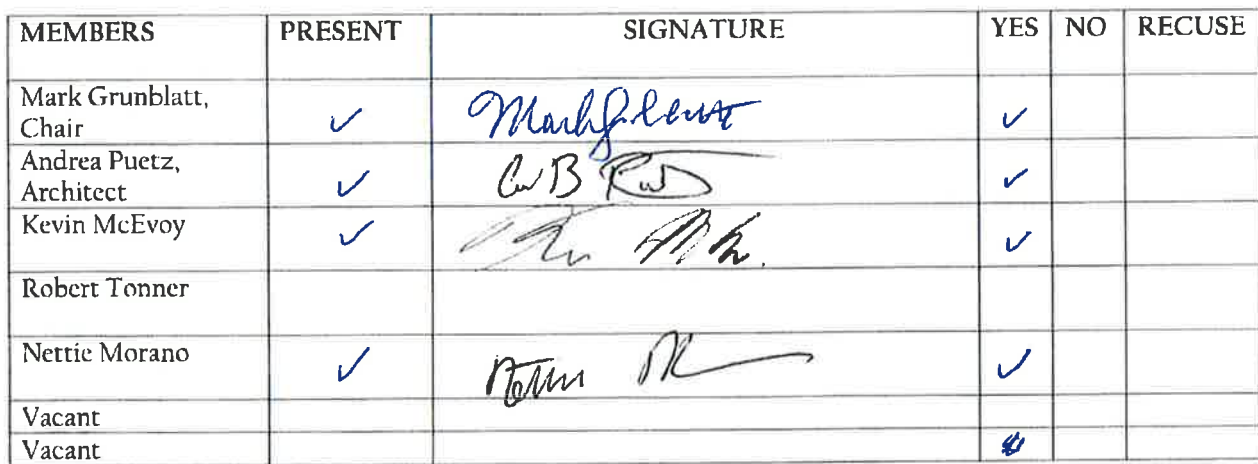 MEMBERS PRESENT SIGNATURE YES NO RECUSE
Mark Grunblatt,
Chair ✓ ✓
Andrea Puetz,
Architect ✓ ✓
Kevin McEvoy ✓ ✓
Robert Tonner
Nettie Morano ✓ ✓
Vacant
Vacant